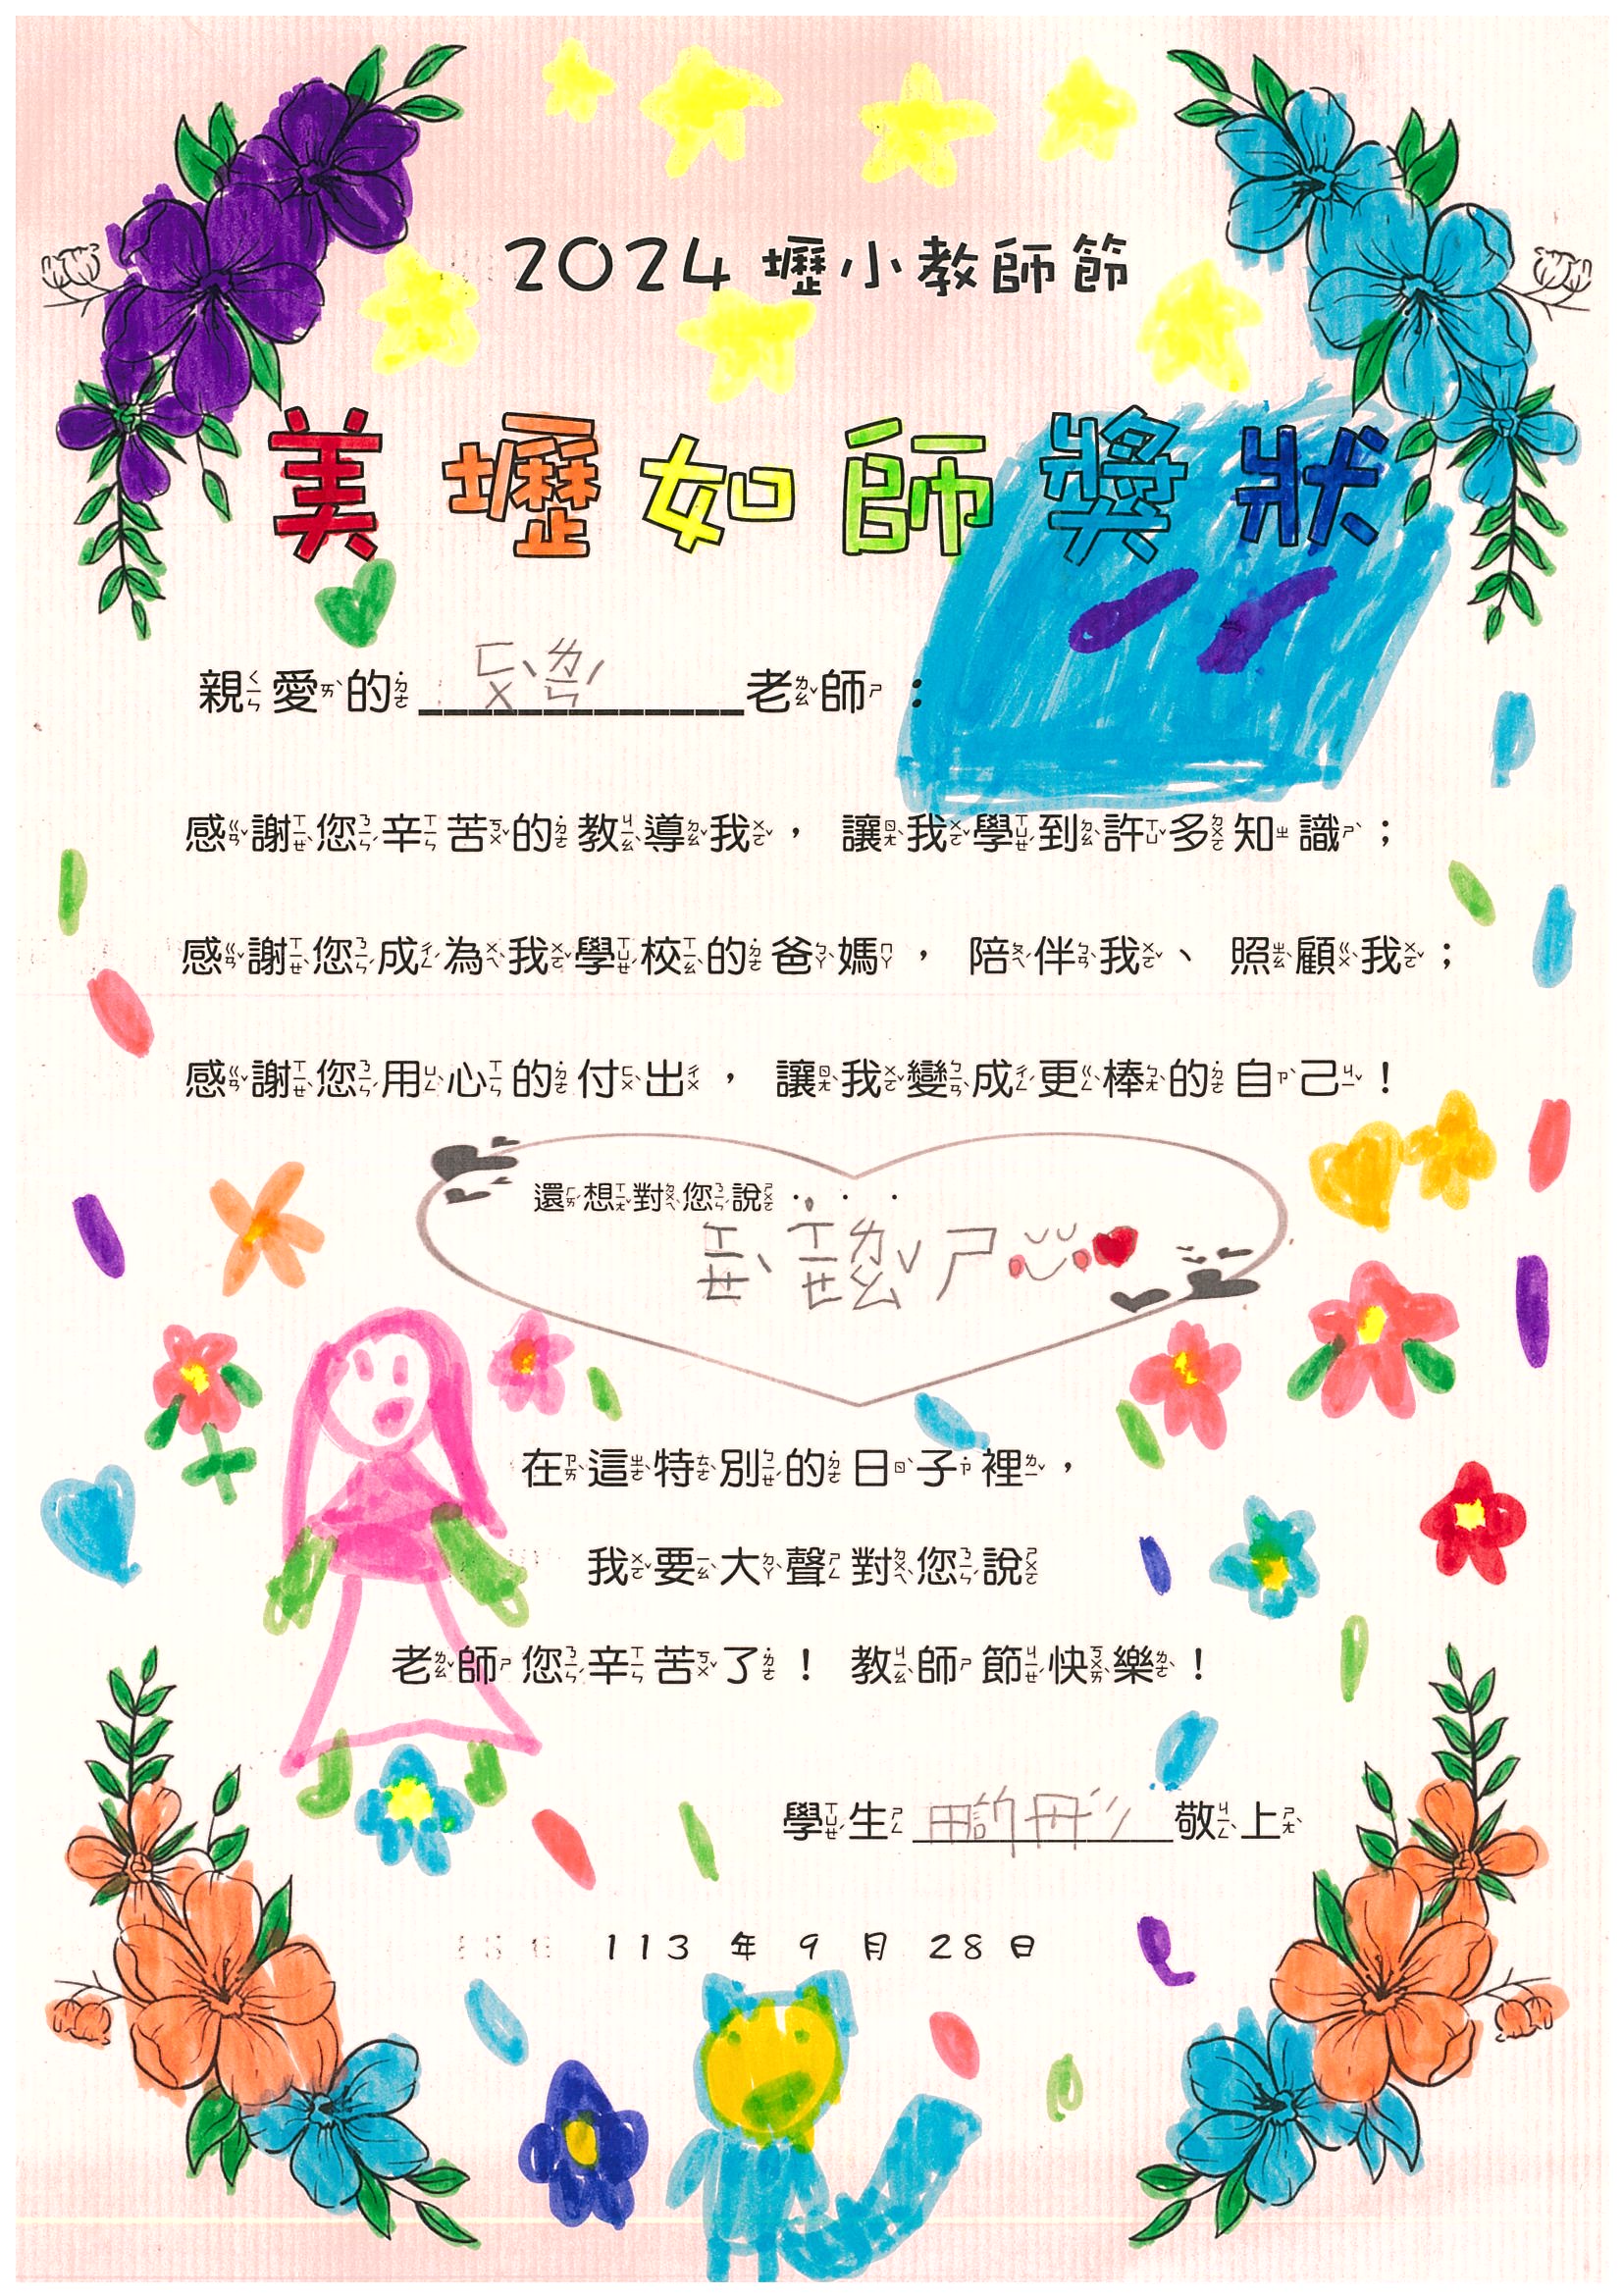 2024 壢小教師節
美壢如師獎狀
親愛的 ㄈㄨˋ ㄌㄢˊ 老師：
感謝您辛苦的教導我，讓我學到許多知識；
感謝您成為我學校的爸媽，陪伴我、照顧我；
感謝您用心的付出，讓我變成更棒的自己！
還想對您說．．．
ㄒㄧㄝˋ ˙ㄒㄧㄝ ㄌㄠˇ ㄕ
在這特別的日子裡，
我要大聲對您說
老師您辛苦了！ 教師節快樂！
學生 敬上
113 年 9 月 28 日